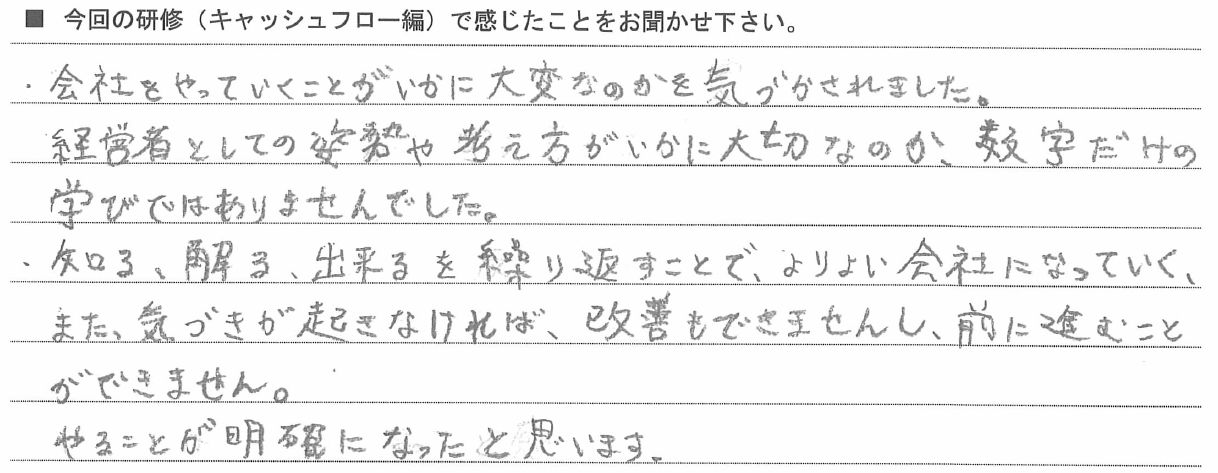 ■ 今回の研修（キャッシュフロー編）で感じたことをお聞かせ下さい。
・会社をやっていくことがいかに大変なのかを気づかされました。
経営者としての姿勢や考え方がいかに大切なのか、数字だけの
学びではありませんでした。
・知る、解る、出来るを繰り返すことで、よりよい会社になっていく、
また、気づきが起きなければ、改善もできませんし、前に進むこと
ができません。
やることが明確になったと思います。